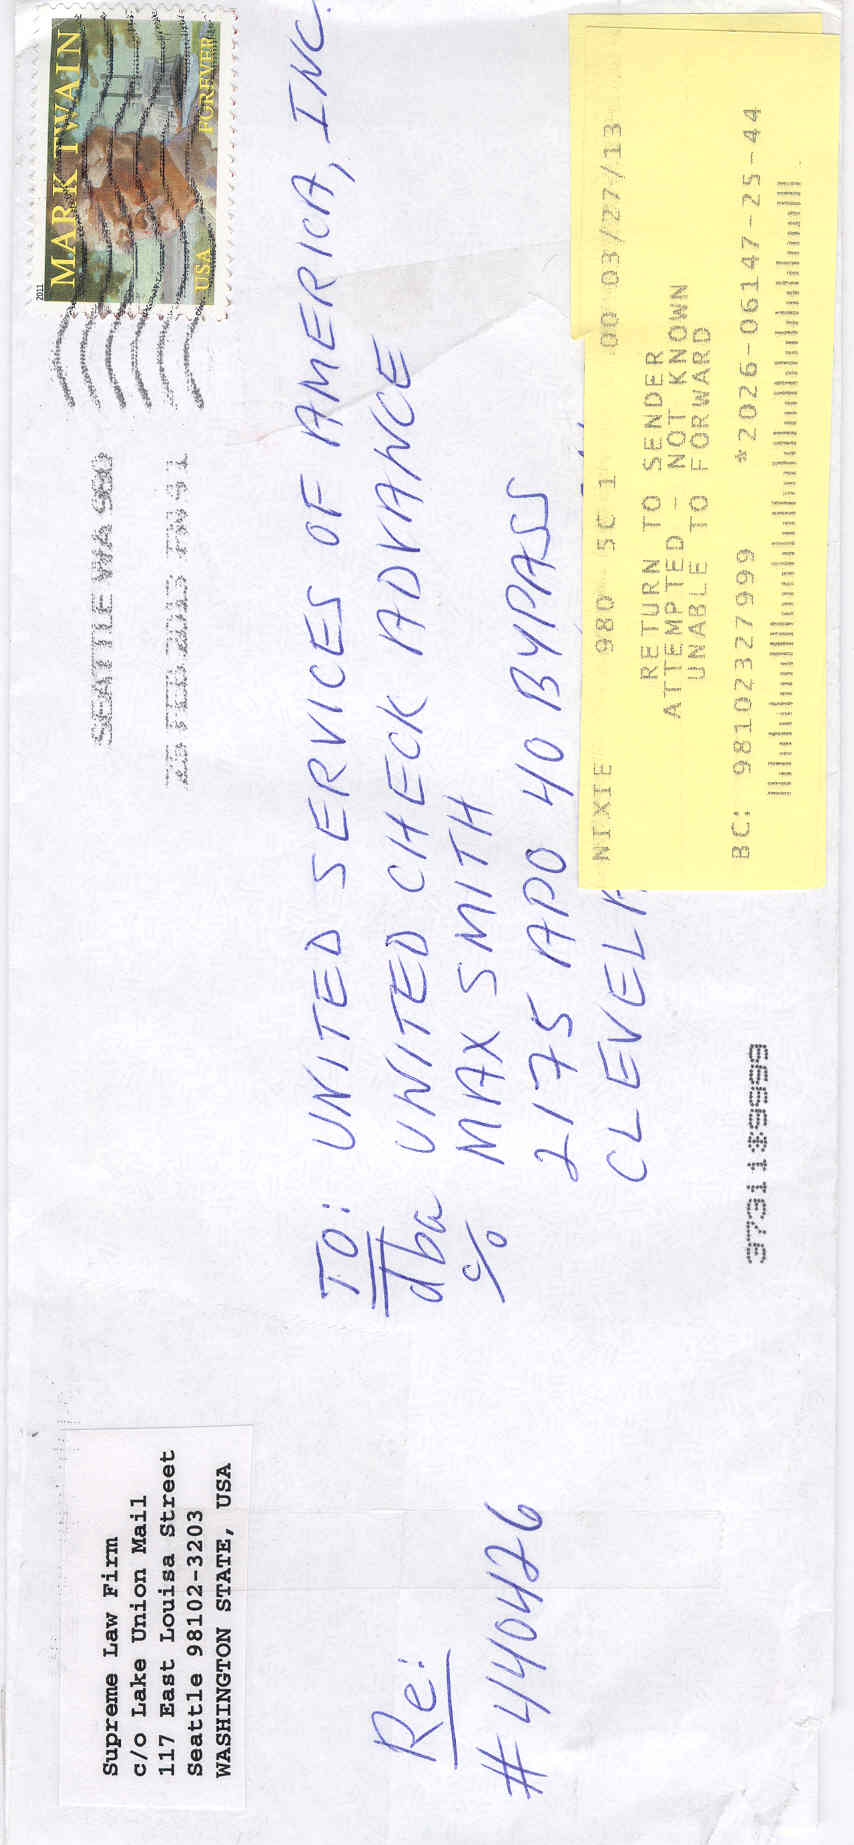 Supreme Law Firm
c/o Lake Union Mail
117 East Louisa Street
Seattle 98102-3203
WASHINGTON STATE, USA
SEATTLE WA 980
2011
MARK TWAIN
USA FOREVER
TO: UNITED SERVICES OF AMERICA, INC.
dba UNITED CHECK ADVANCE
c/o MAX SMITH
2175 APO 40 BYPASS
CLEVELA
Re:
#440426
NIXIE 980 5C 1 00 03/27/13
RETURN TO SENDER
ATTEMPTED - NOT KNOWN
UNABLE TO FORWARD
BC: 98102327999 *2026-06147-25-44